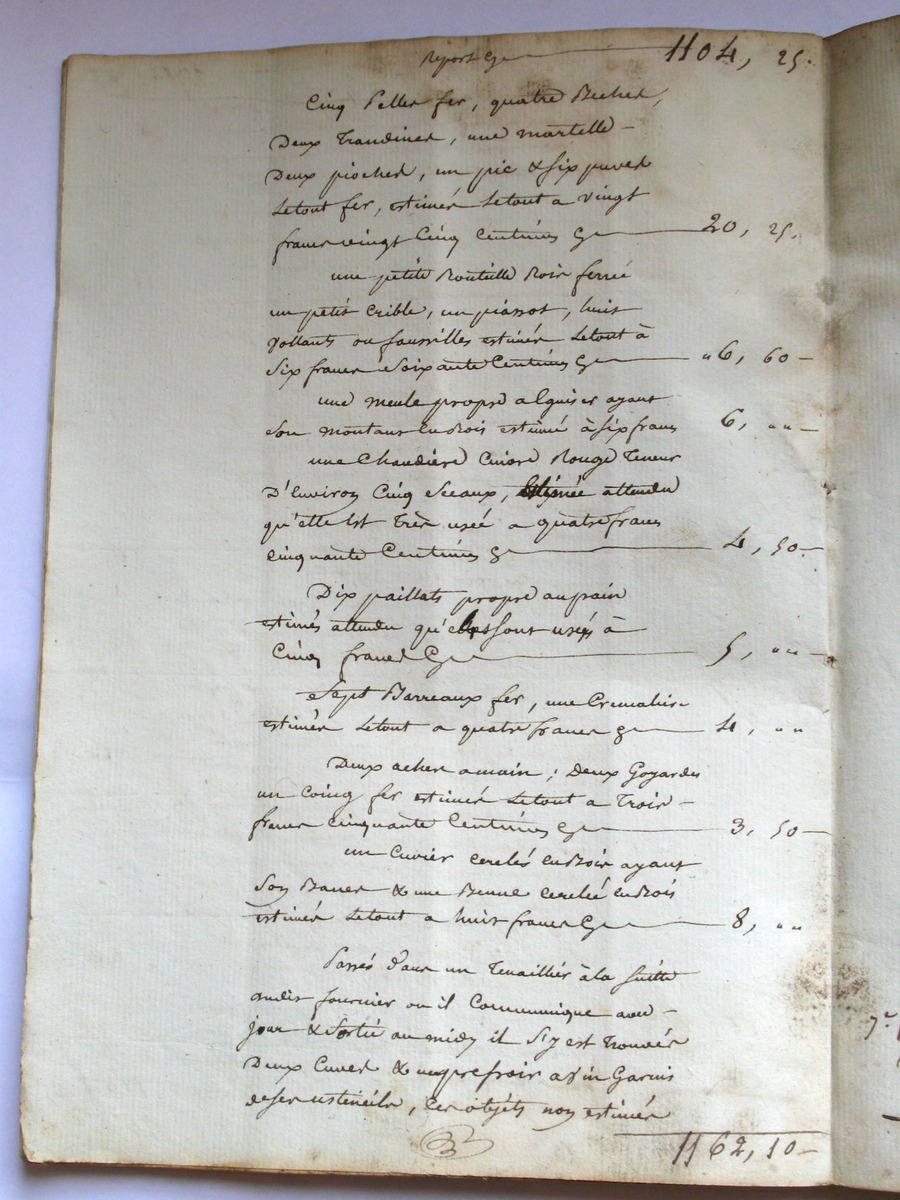 Report Cy 1104, 25.
Cinq Pelles fer, quatre Beches,
Deux Traudines, une martelle
Deux pioches, un pic & six puves
Letout fer, estimés Letout a vingt
francs vingt Cinq Centimes Cy 20, 25.
une petite Bouteille Bois ferrée
un petit Crible, un piassot, huit
vollants ou faussilles estimés Letout à
Six francs Soixante Centimes Cy 6, 60
une meule propre a Eguiser ayant
Son montant en Bois estimé à six francs 6, ""
une Chaudière Cuivre Rouge Teneur
D'Environ Cinq Seaux, Estimée attendu
qu'elle Est Très usée a quatre francs
Cinquante Centimes Cy 4, 50
Dix paillats propre au pain
estimés attendu qu'elles sont usés à
Cinq francs Cy 5, ""
Sept Barreaux fer, une Cremaliere
estimés Letout a quatre francs Cy 4, ""
Deux aches amain ; Deux Goyardes
un Coing fer estimés Letout a Trois
francs cinquante Centimes Cy 3, 50
un Cuvier cerclés en Bois ayant
Son Banc & une Benne cerclée en Bois
estimés Letout a huit francs Cy 8, ""
Passés dans un Tenaillier à la suitte
dudit fournier ou il Communique avec
jour & Sortie au midy il s'y est Trouvés
Deux Cuves & un pressoir a vin Garnis
de ses ustenciles, Ces objets non estimés
1162, 10